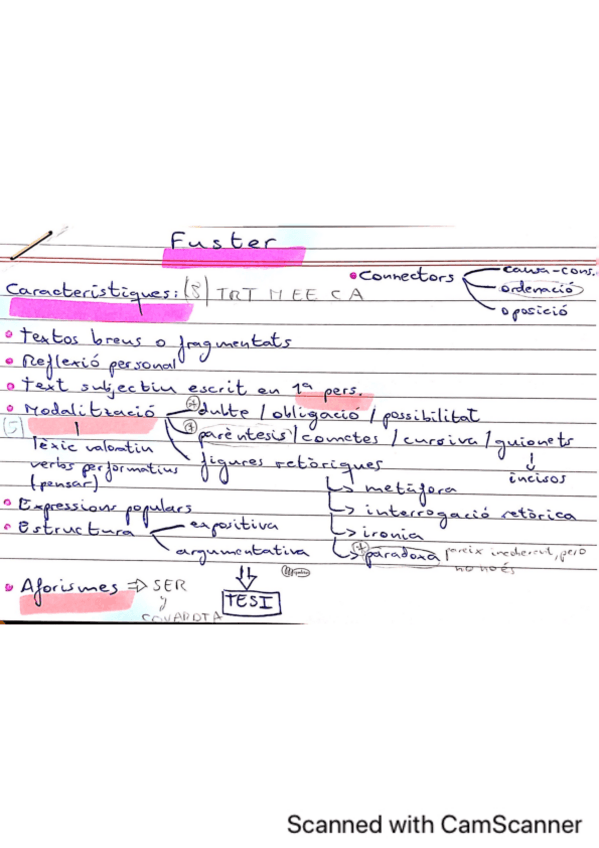 Fuster
• Connectors
causa-cons.
ordenació
oposició
Característiques: (8) TRT M EE C A
• Textos breus o fragmentats
• Reflexió personal
• Text subjectiu escrit en 1ª pers.
• Modalització
dubte / obligació / possibilitat
parèntesis / cometes / cursiva / guionets
incisos
figures retòriques
metàfora
interrogació retòrica
ironia
paradoxa pareix incoherent, pero
no no és
(5)
lèxic valoratiu
verbs performatius
(pensar)
• Expressions populars
• Estructura
expositiva
argumentativa
TESI
• Aforismes ⇒ SER
y
COVARDIA
Scanned with CamScanner